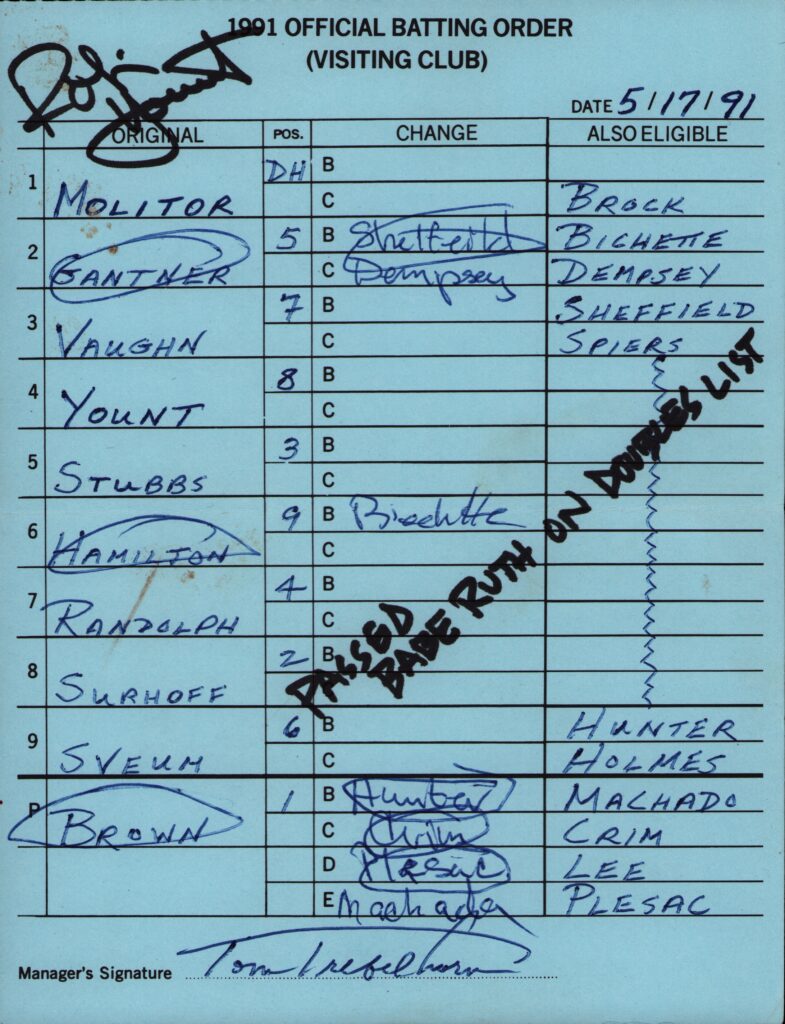 1991 OFFICIAL BATTING ORDER
(VISITING CLUB)
Robin Yount
DATE 5/17/91
ORIGINAL POS. CHANGE ALSO ELIGIBLE
1 MOLITOR DH B
C BROCK
2 GANTNER 5 B Sheffield BICHETTE
C Dempsey DEMPSEY
3 VAUGHN 7 B SHEFFIELD
C SPIERS
4 YOUNT 8 B
C
5 STUBBS 3 B
C
6 HAMILTON 9 B Bichette
C
7 RANDOLPH 4 B
C
8 SURHOFF 2 B
C
9 SVEUM 6 B HUNTER
C HOLMES
P BROWN 1 B Hunter MACHADO
C Crim CRIM
D Plesac LEE
E Machado PLESAC
PASSED
BABE RUTH ON DOUBLES LIST
Manager's Signature Tom Trebelhorn